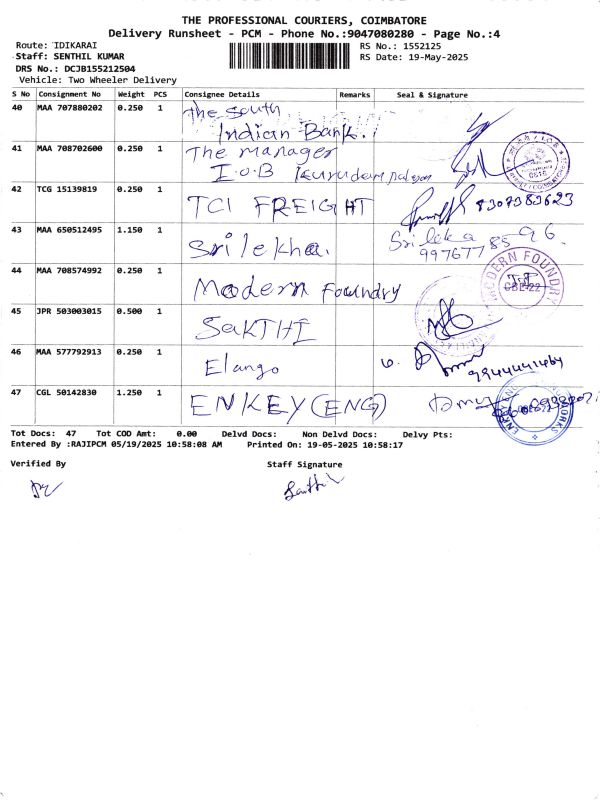 THE PROFESSIONAL COURIERS, COIMBATORE
Delivery Runsheet - PCM - Phone No.:9047080280 - Page No.:4
Route: IDIKARAI
RS No.: 1552125
Staff: SENTHIL KUMAR
RS Date: 19-May-2025
DRS No.: DCJB155212504
Vehicle: Two Wheeler Delivery
S No Consignment No Weight PCS Consignee Details Remarks Seal & Signature
40 MAA 707880202 0.250 1 The South
Indian Bank.
41 MAA 708702600 0.250 1 The manager
I.O.B
42 TCG 15139819 0.250 1 TCI FREIGHT 8307383623
43 MAA 650512495 1.150 1 Srilekha. Srileka
9976778596.
44 MAA 708574992 0.250 1 Modern Foundry
MODERN FOUNDRY
CBE-22
45 JPR 503003015 0.500 1 SAKTHI
46 MAA 577792913 0.250 1 Elango
9944441464
47 CGL 50142830 1.250 1 ENKEY (ENG)
Tot Docs: 47 Tot COD Amt: 0.00 Delvd Docs: Non Delvd Docs: Delvy Pts:
Entered By :RAJIPCM 05/19/2025 10:58:08 AM Printed On: 19-05-2025 10:58:17
Verified By Staff Signature